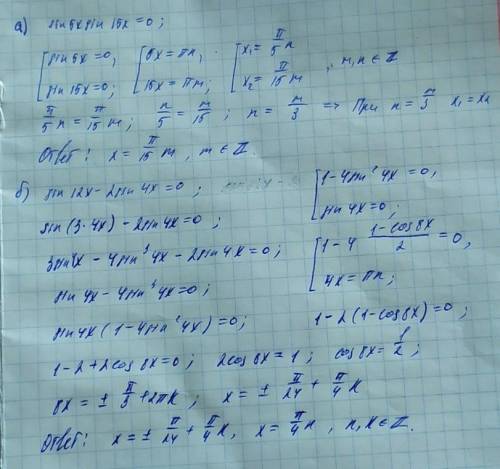 а) sin 5x sin 15x = 0;
[ sin 5x = 0, sin 15x = 0; [ 5x = πn, 15x = πm; [ x₁ = π/5 n x₂ = π/15 m , m, n ∈ Z
π/5 n = π/15 m; n/5 = m/15; n = m/3 => При n = m/3 x₁ = x₂
Ответ: x = π/15 m, m ∈ Z.
б) sin 12x - 2sin 4x = 0;
sin (3·4x) - 2sin 4x = 0;
3sin 4x - 4sin³ 4x - 2sin 4x = 0;
sin 4x - 4sin³ 4x = 0;
sin 4x (1 - 4sin² 4x) = 0;
[ 1 - 4sin² 4x = 0, sin 4x = 0;
[ 1 - 4 (1 - cos 8x)/2 = 0, 4x = πn;
1 - 2(1 - cos 8x) = 0;
1 - 2 + 2cos 8x = 0; 2cos 8x = 1; cos 8x = 1/2;
8x = ± π/3 + 2πk; x = ± π/24 + π/4 k
Ответ: x = ± π/24 + π/4 k, x = π/4 n, n, k ∈ Z.